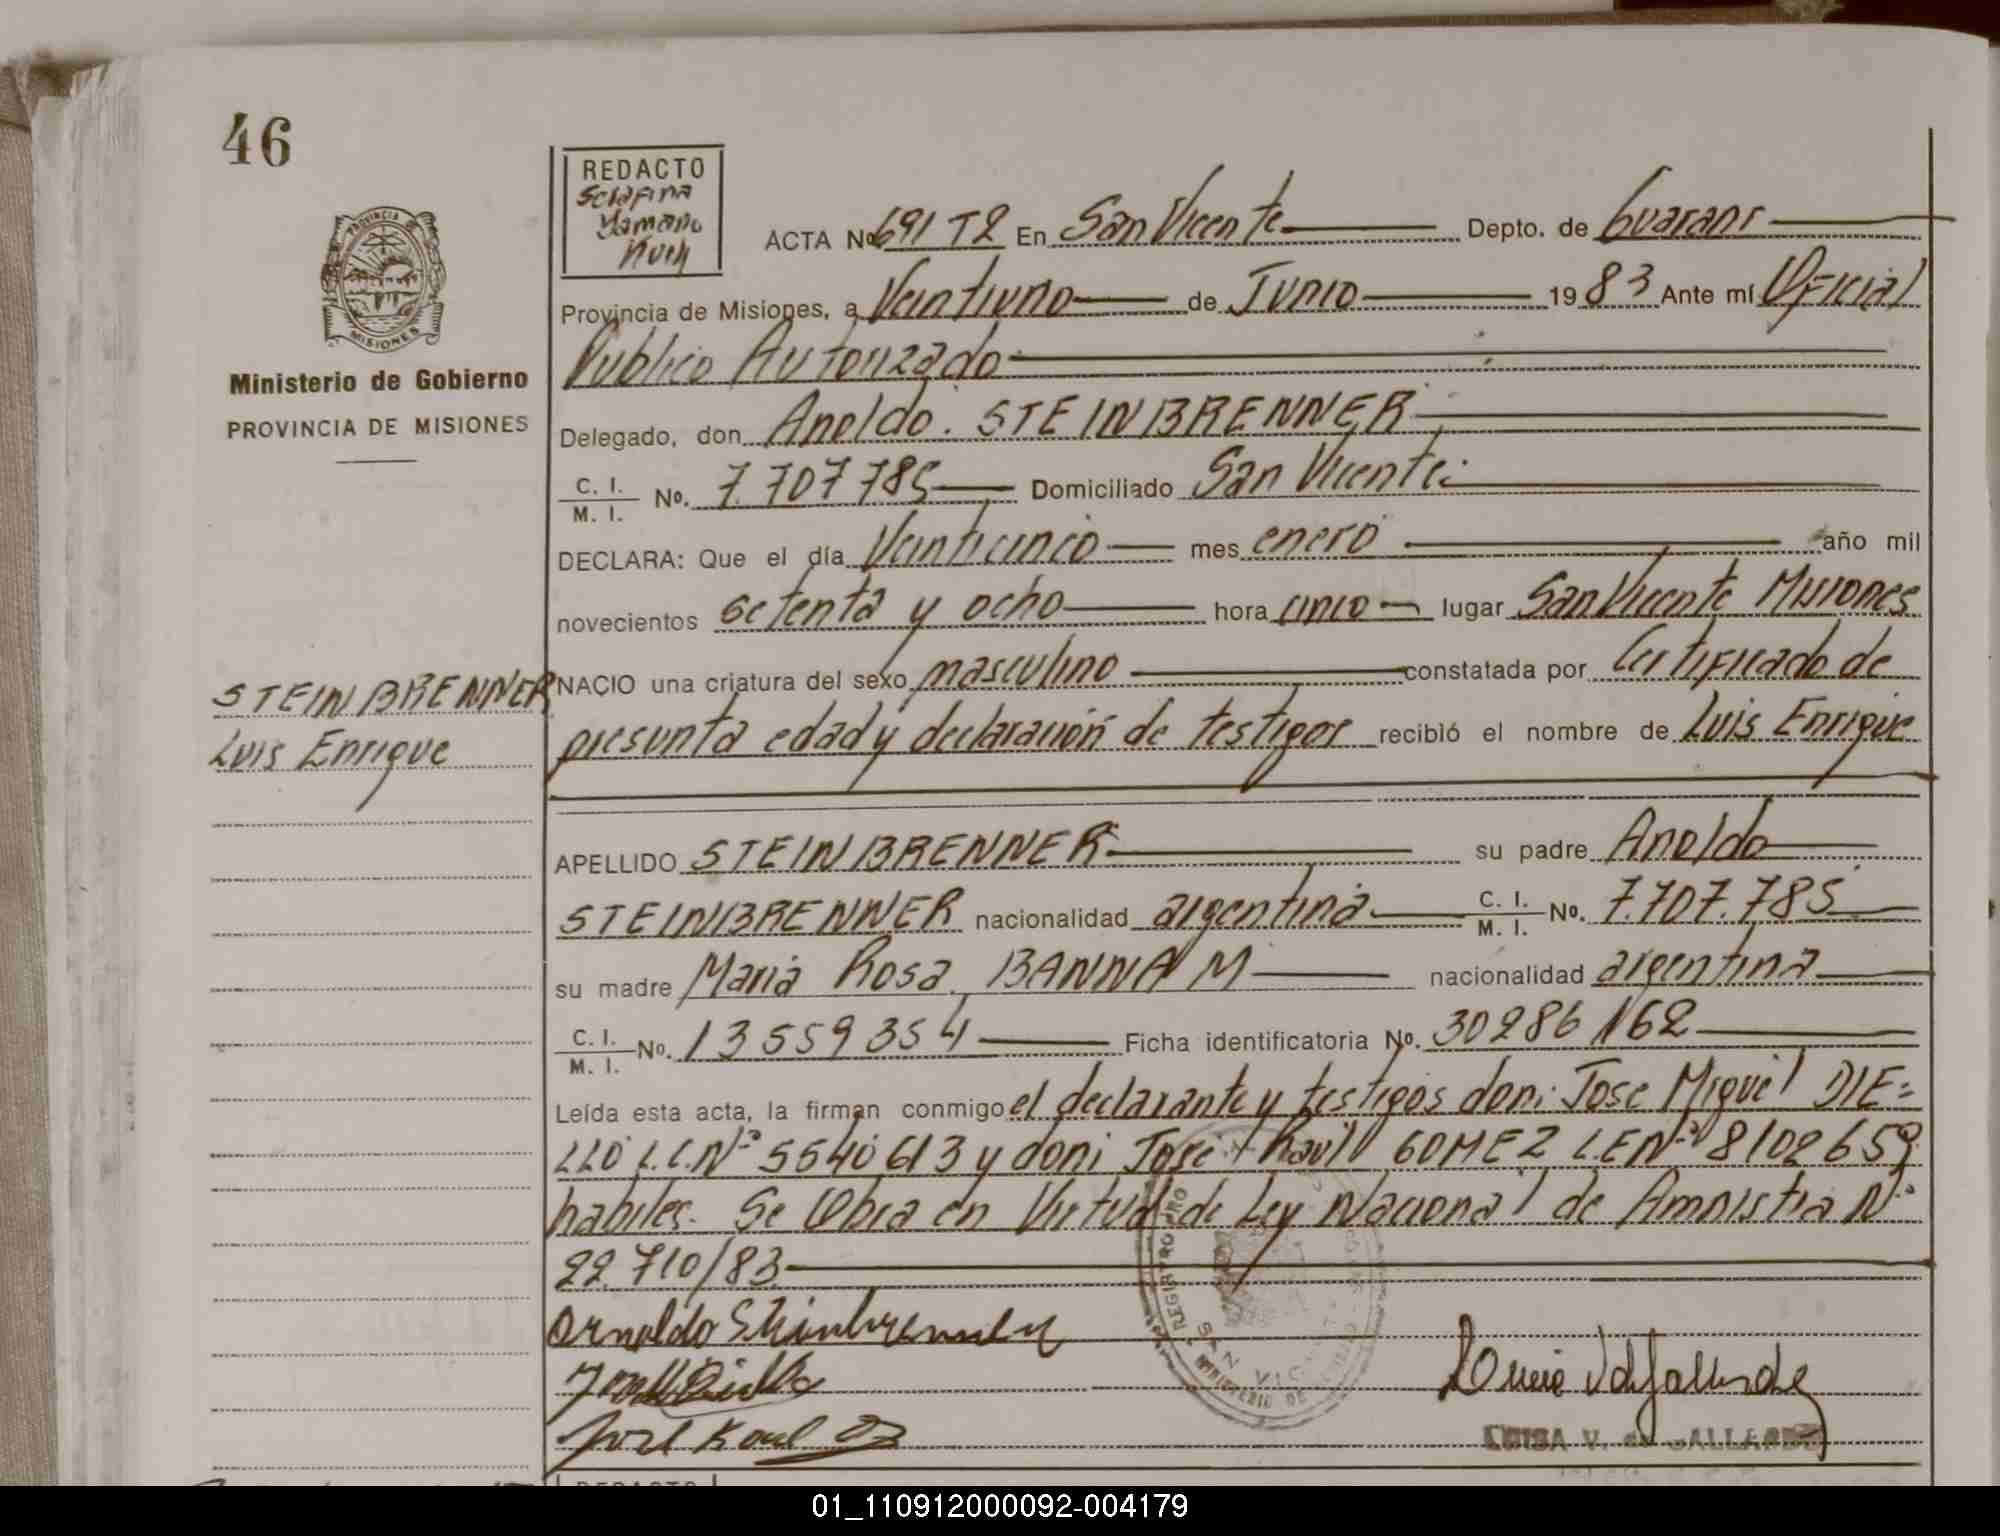 46
REDACTO
Yamano
Kuch
PROVINCIA DE
MISIONES
Ministerio de Gobierno
PROVINCIA DE MISIONES
STEINBRENNER
Luis Enrique
ACTA Nº 691 T2 En San Vicente Depto. de Guarani
Provincia de Misiones, a Veintiuno de Junio 1983 Ante mí Oficial
Publico Autorizado
Delegado, don Aneldo. STEINBRENNER
C. I. / M. I. No. 7.707 785 Domiciliado San Vicente.
DECLARA: Que el día Veinticinco mes enero año mil
novecientos setenta y ocho hora cinco lugar San Vicente Misiones
NACIO una criatura del sexo masculino constatada por Certificado de
presunta edad y declaración de testigos recibió el nombre de Luis Enrique
APELLIDO STEINBRENNER su padre Aneldo
STEINBRENNER nacionalidad argentina C. I. / M. I. No. 7.707.785
su madre Maria Rosa BANNAM nacionalidad argentina
C. I. / M. I. No. 13559354 Ficha identificatoria No. 30286/162
Leída esta acta, la firman conmigo el declarante y testigos don: Jose Miguel DIE=
LLO L.C.Nº 5540613 y don: Jose Raul GOMEZ L.E Nº 8102659
habiles. Se Obra en Virtud de Ley Nacional de Amnistia Nº
22.710/83
Arnoldo Steinbrenner
REGISTRO
SAN VICENTE
MINISTERIO DE
LUISA V. de GALLARDO
REDACTO
01_110912000092-004179